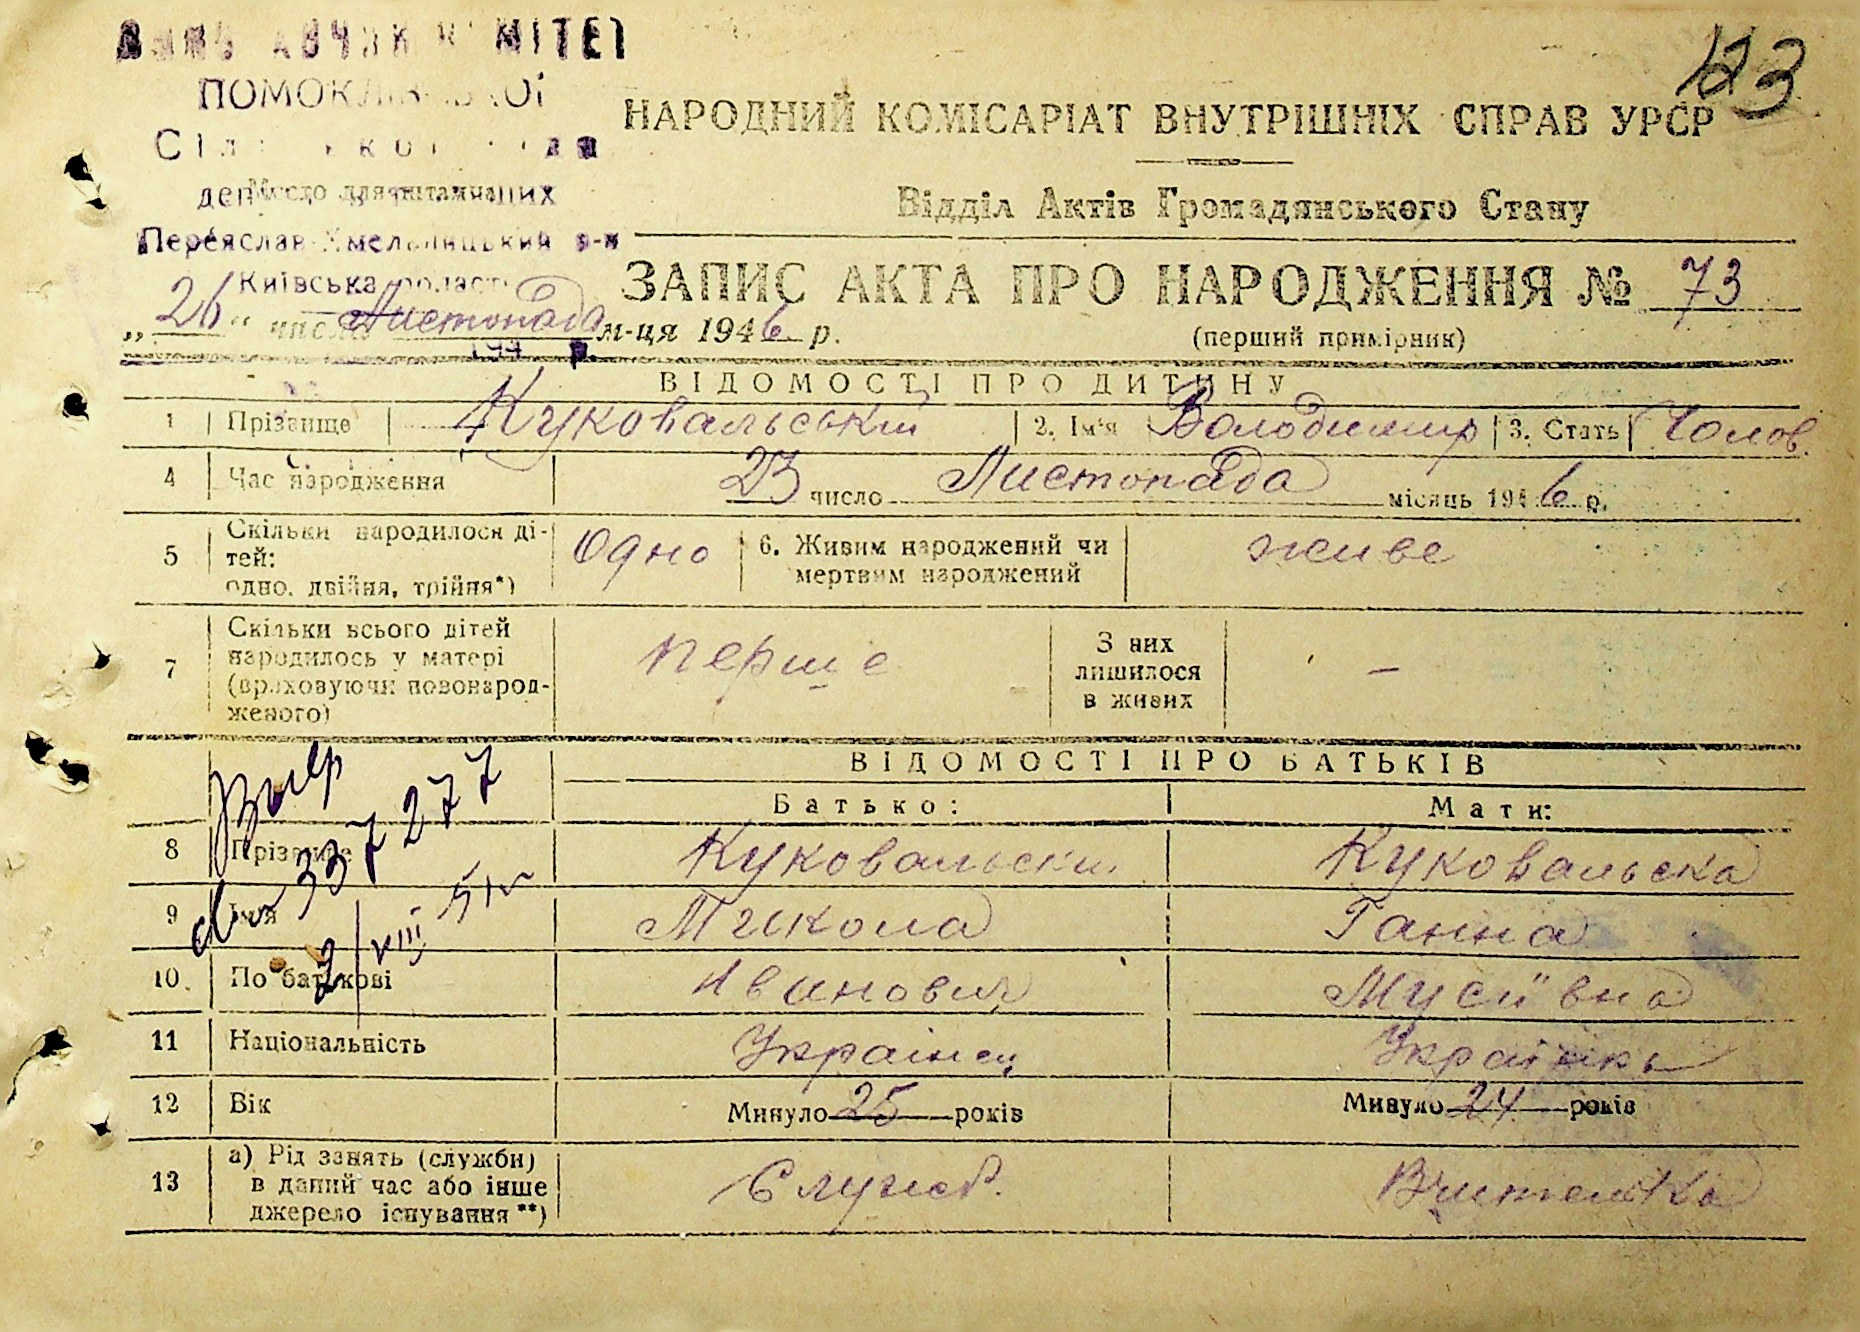 123
ПОМОКЛІВСЬКОЇ
НАРОДНИЙ КОМІСАРІАТ ВНУТРІШНІХ СПРАВ УРСР
Відділ Актів Громадянського Стану
Переяслав-Хмельницький р-н
Київська
ЗАПИС АКТА ПРО НАРОДЖЕННЯ № 73
„26“ числа Листопада м-ця 1946 р.
(перший примірник)
ВІДОМОСТІ ПРО ДИТИНУ
1 Прізвище Куковальський 2. Ім'я Володимир 3. Стать Чолов.
4 Час народження 23 число Листопада місяць 1946 р.
5 Скільки народилося ді-
тей:
одно, двійня, трійня*) Одно 6. Живим народжений чи
мертвим народжений живе
7 Скільки всього дітей
народилось у матері
(враховуючи новонарод-
женого) перше З них
лишилося
в живих –
ВІДОМОСТІ ПРО БАТЬКІВ
Батько: Мати:
337277
2/VIII 51
8 Прізвище Куковальськи Куковальска
9 Ім'я Микола Ганна
10. По батькові Иванович Мусіївна
11 Національність Українец Українка
12 Вік Минуло 25 років Минуло 24 років
13 а) Рід занять (служби)
в даний час або інше
джерело існування**) Служб. Вчителька